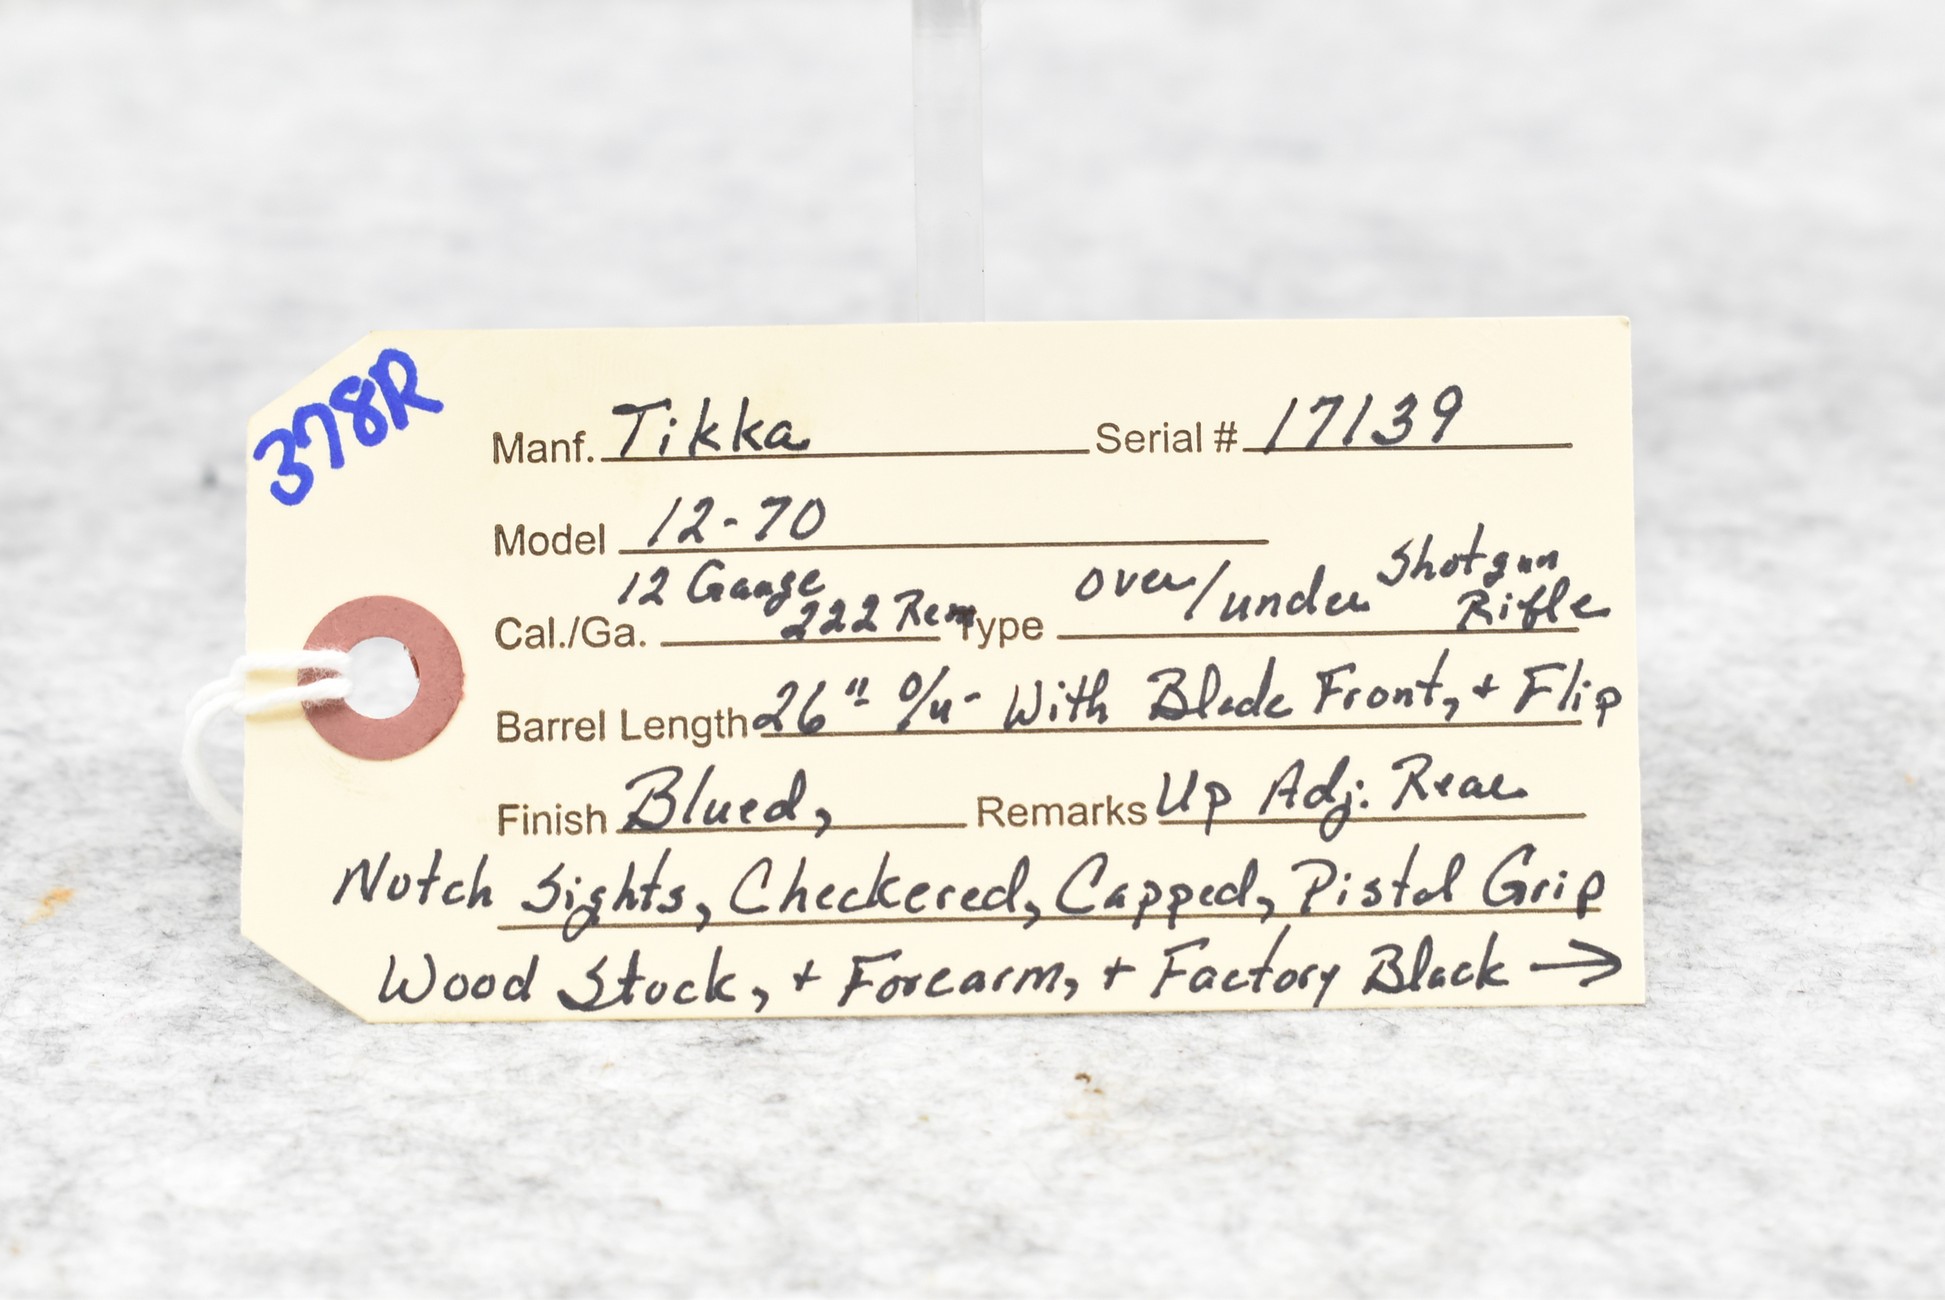 378R
Manf. Tikka Serial # 17139
Model 12-70
Cal./Ga. 12 Gauge 222 Rem Type over/under Shotgun Rifle
Barrel Length 26" O/U - With Blade Front, + Flip
Finish Blued, Remarks Up Adj. Rear
Notch Sights, Checkered, Capped, Pistol Grip
Wood Stock, + Forearm, + Factory Black →